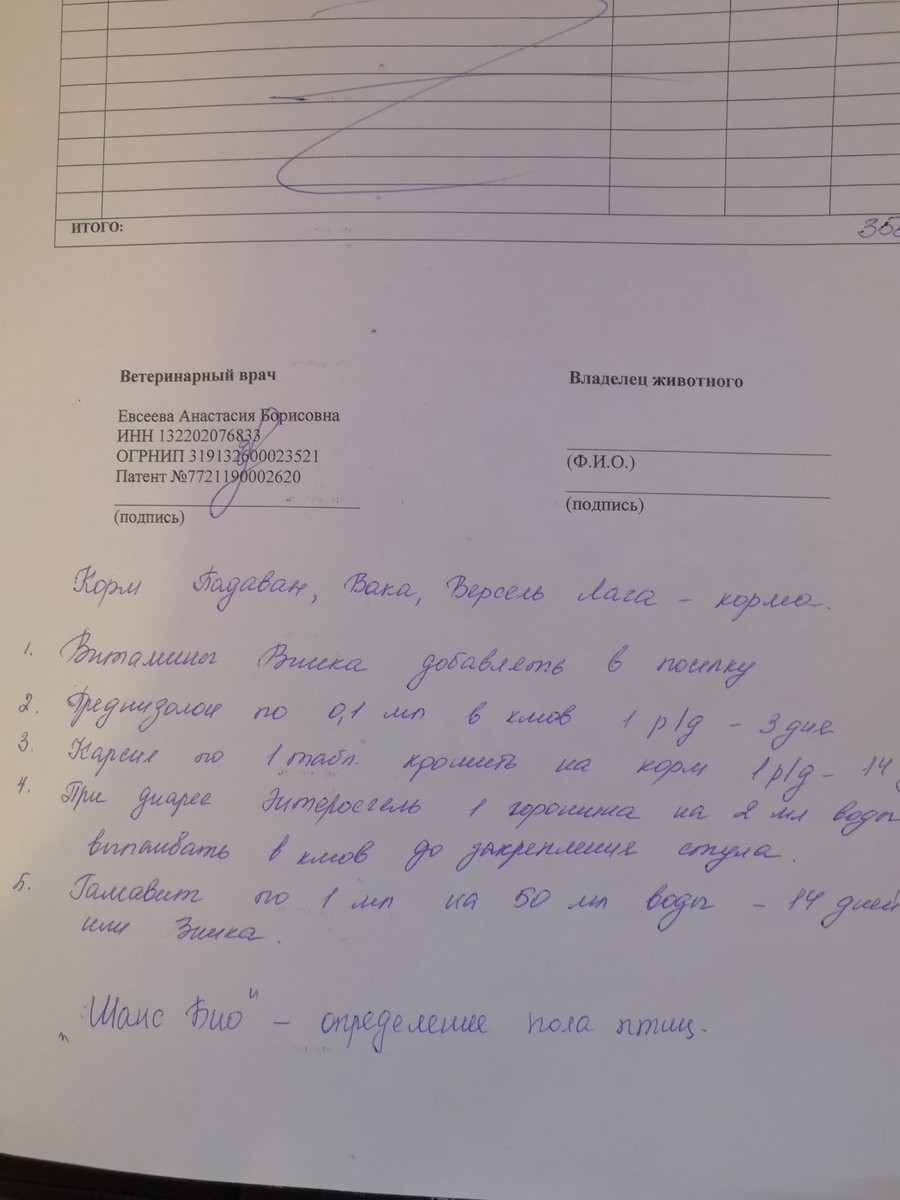 ИТОГО: 350
Ветеринарный врач
Владелец животного
Евсеева Анастасия Борисовна
ИНН 132202076833
ОГРНИП 319132600023521
Патент №7721190002620
(Ф.И.О.)
(подпись)
(подпись)
Корм Падаван, Вака, Версель Лага – корма.
1. Витамины Виака добавлять в посыпку
2. Преднизолон по 0,1 мл в клюв 1 р/д – 3 дня
3. Карсил по 1 табл. крошить на корм 1р/д – 14
4. При диарее Энтеросгель 1 горошина на 2 мл воды
выпаивать в клюв до закрепления стула.
5. Гамавит по 1 мл на 50 мл воды – 14 дней
или Виака.
„Шанс Био" – определение пола птиц.